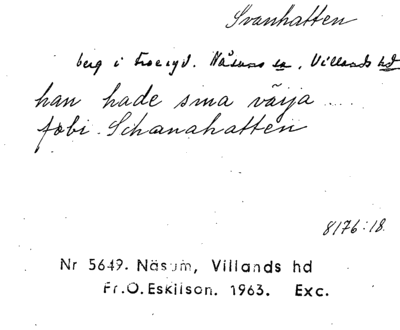 Svanhatten
berg i Froeryd. Näsums sn, Villands hd
han hade sma väija ....
fobi. Schanahatten
8176:18.
Nr 5649. Näsum, Villands hd
Fr.O.Eskilson. 1963. Exc.